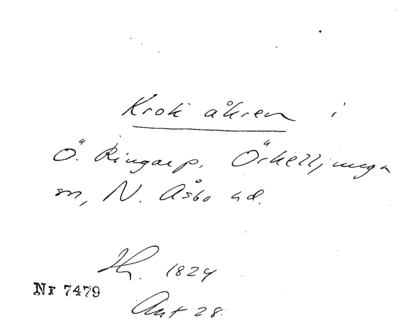 Krok åkren i
Ö. Ringarp, Örkelljunga
sn, N. Åsbo hd.
Th. 1824
Nr 7479
Akt 28.